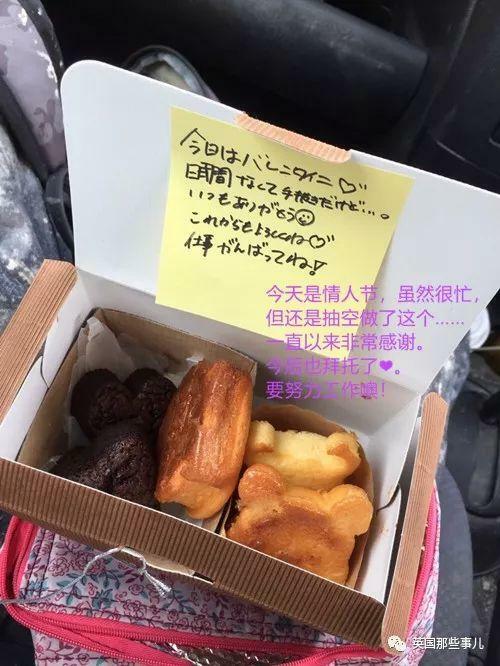 今日はバレンタイン♡
時間なくて手抜きだけど…。
いつもありがとう☺
これからもよろしくね♡
仕事がんばってね!
今天是情人节，虽然很忙，
但还是抽空做了这个……
一直以来非常感谢。
今后也拜托了❤。
要努力工作噢！
英国那些事儿